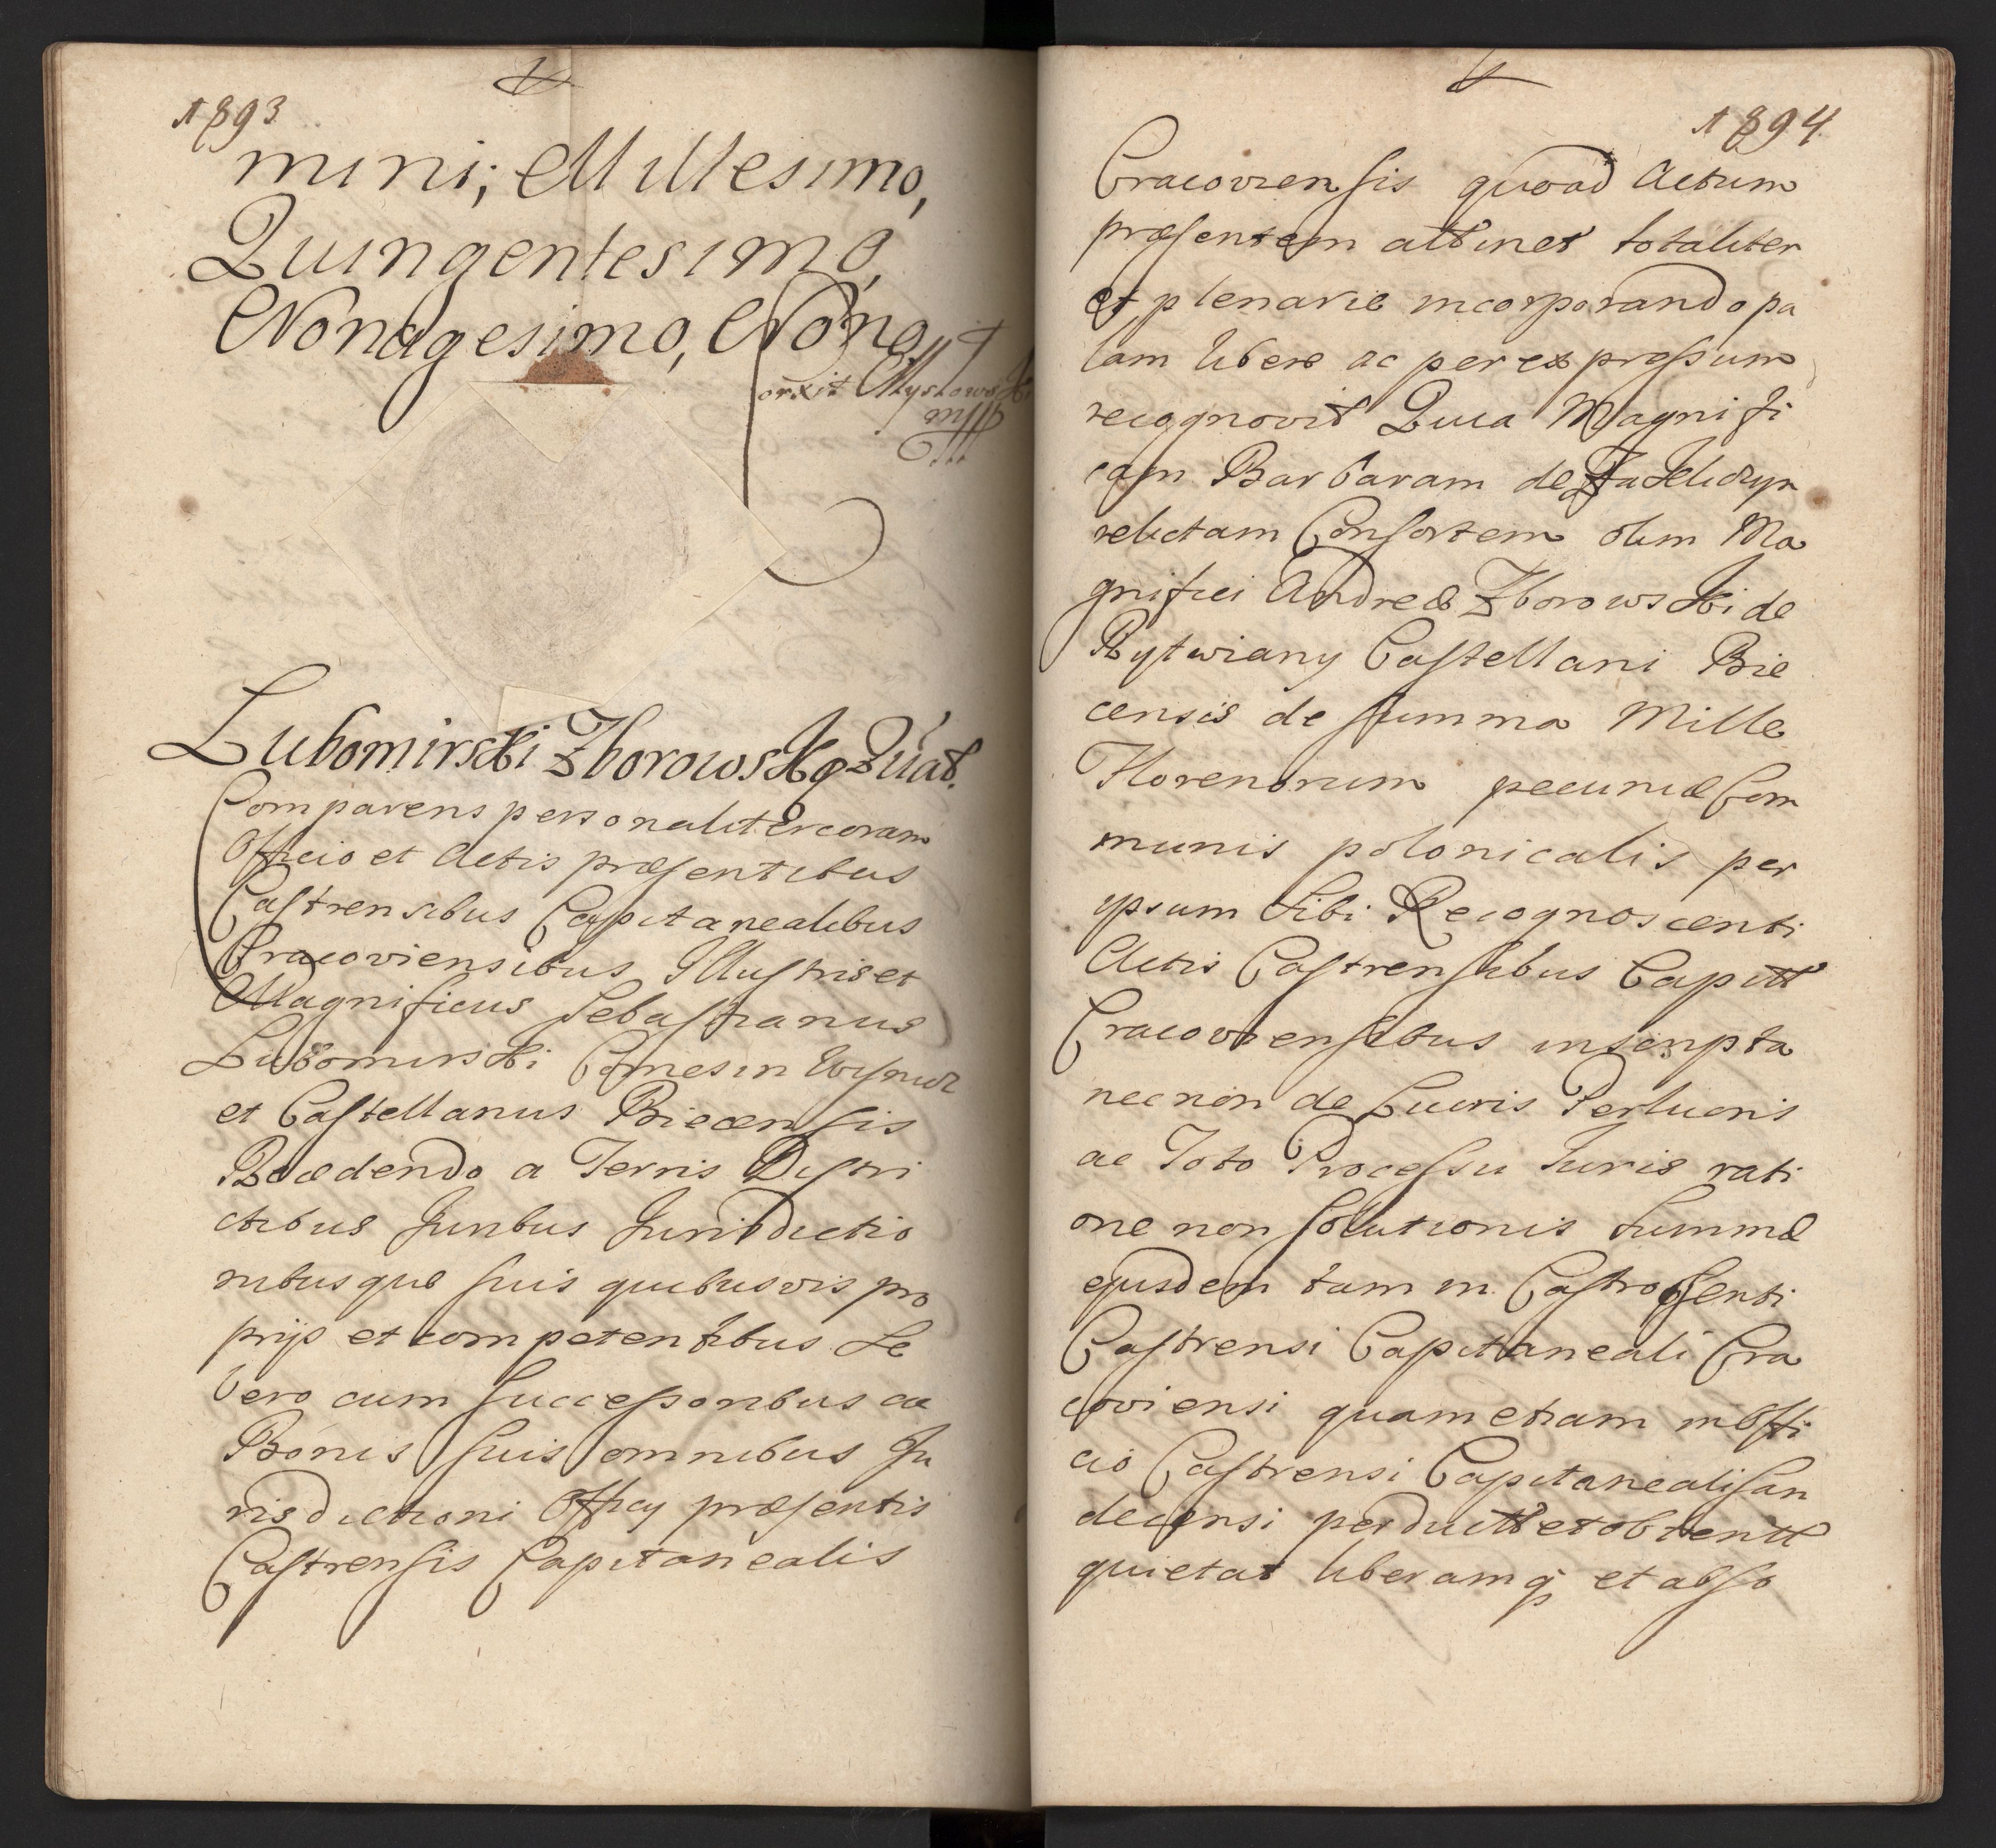 1893
mini; Millesimo,
Quingentesimo,
Nonagesimo, Nono
Lubomirski Zborowską Quiat.
Comparens personalitercoram
Officio et Actis præsentibus
Castrensibus Capitanealibus
Cracoviensibus Illustris et
Magnificus Sebastianus
Lubomirski Comes in Wisnicz
et Castellanus Biecensis
Recedendo a Terris Distri
ctibus Juribus Jurisdictio
nibusque suis quibusvis pro
prijs et competentibus Se
Vero cum Successoribus ac
Bonis suis omnibus Ju
risdictioni Officij præsentis
Castrensis Capitanealis
1894
Cracoviensis quoad Actum
præsentem attinet totaliter
et plenarie incorporando pa
lam libere ac per expressum
recognovit Quia Magnifi
cam Barbaram de
relictam Consortem olim Ma
gnifici Andreæ Zborowski de
Rytwiany Castellani Bie
censis de summa Mille
Florenorum pecuniæ Com
munis polonicalis per
ipsum Sibi Recognoscenti
Actis Castrensibus Capitt
Cracoviensibus inscripta
nec non de Lucris Perlucris
ac Toto Processu Juris rati
one non solutionis Summæ
ejusdem tam in Castro Psenti
Castrensi Capitaneali Cra
coviensi quam etiam in Offi
cio Castrensi Capitaneali San
decensi perductt et obtentt
quietat liberamq; et abso